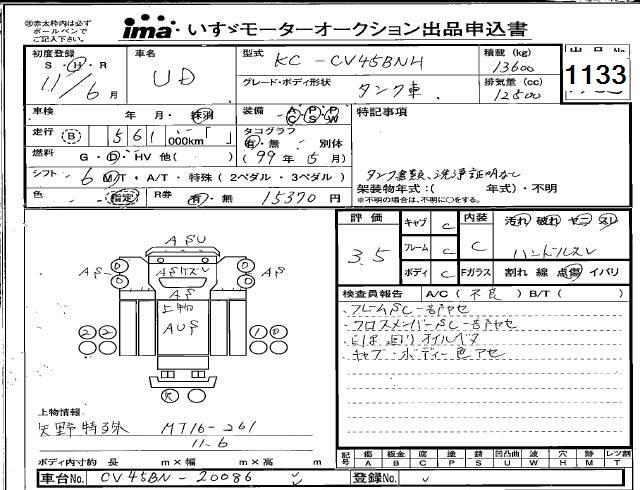 ※赤太枠内は必ず
ボールペンで
ご記入下さい。
ima いすゞモーターオークション出品申込書
初度登録
S・H・R
11/6月
車名
UD
型式
KC-CV45BNH
グレード・ボディ形状
タンク車
積載 (kg)
13600
排気量 (cc)
12500
出品No
1133
車検
年 月・抹消
装備
AC PS PW
特記事項
走行 B 561 000km「 」
タコグラフ
有・無 別体
(99年5月)
燃料 G・D・HV 他( )
シフト 6 MT・A/T・特殊(2ペダル・3ペダル)
タンク書類、洗浄証明なし
架装物年式:( 年式)・不明
※不明の場合は、不明に○をする。
色 - 指定
R券 有・無 15370円
評価
3.5
キャブ C
フレーム C
ボディ C
内装
C
汚れ 破れ ヤニ スレ
ハンドルスレ
Fガラス 割れ 線 点傷 イバリ
検査員報告 A/C(不良)B/T( )
・フレームSC-部ヤセ
・クロスメンバーSC-部ヤセ
・キャブ・ボディー色アセ
ASU
AS
AS
AS
上物
AUS
上物情報
矢野特殊 MT16-261
11-6
ボディ内寸約 長 m×幅 m×高 m
記号 傷A 板金B 腐C 塗P 錆S 凹凸曲U 波W 穴H 跡M レツ割T
車台No. CV45BN-20086
登録No.